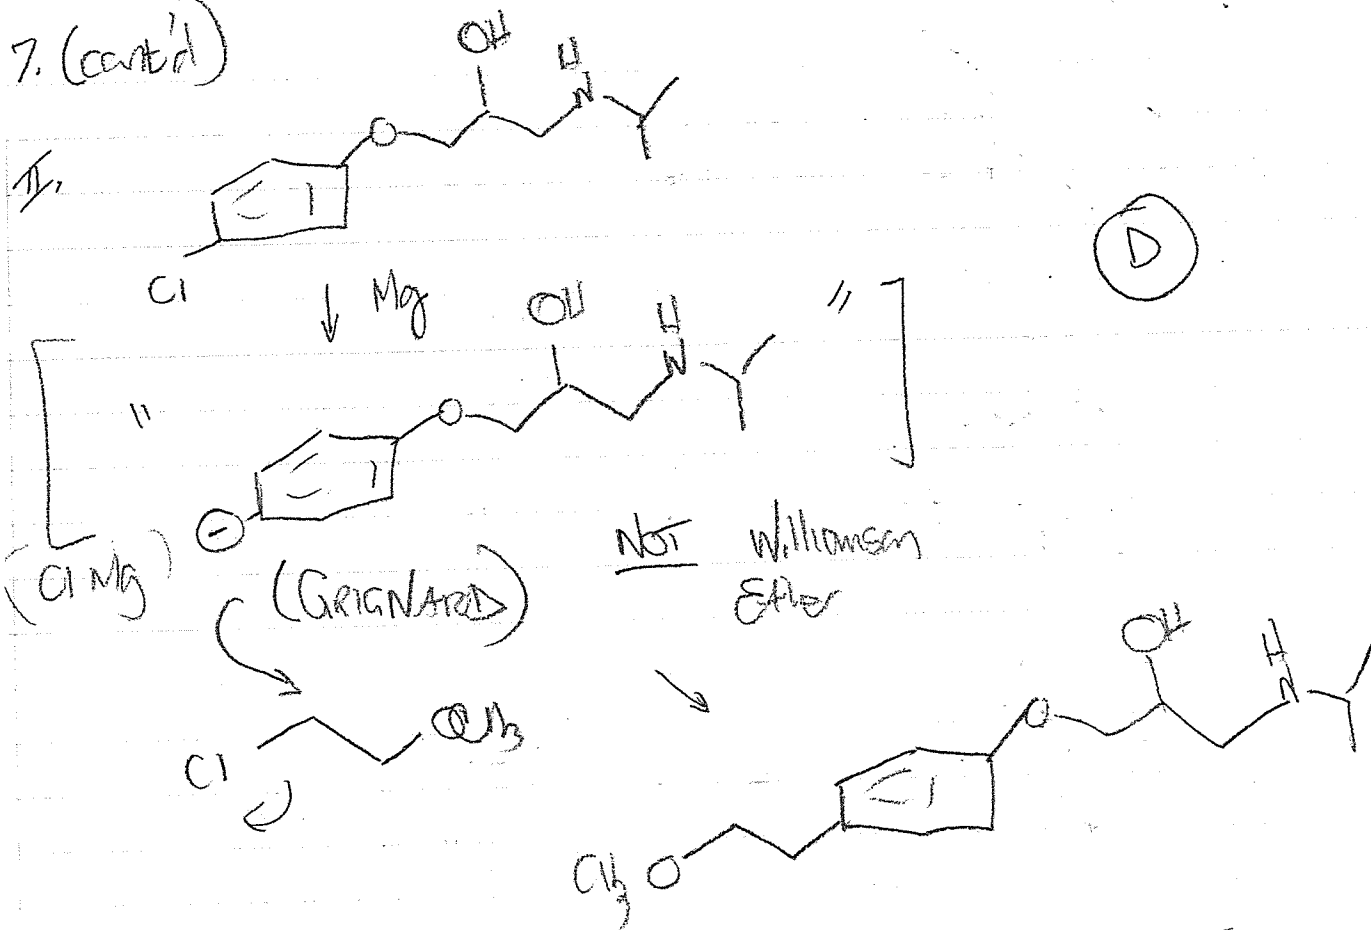 7. (cont'd)
OH
H
N
O
II.
Cl
D
Mg
OH
H
N
" "
O
−
(Cl Mg)
(GRIGNARD)
NOT Williamson
Ether
Cl
OCH3
OH
H
N
O
CH3 O